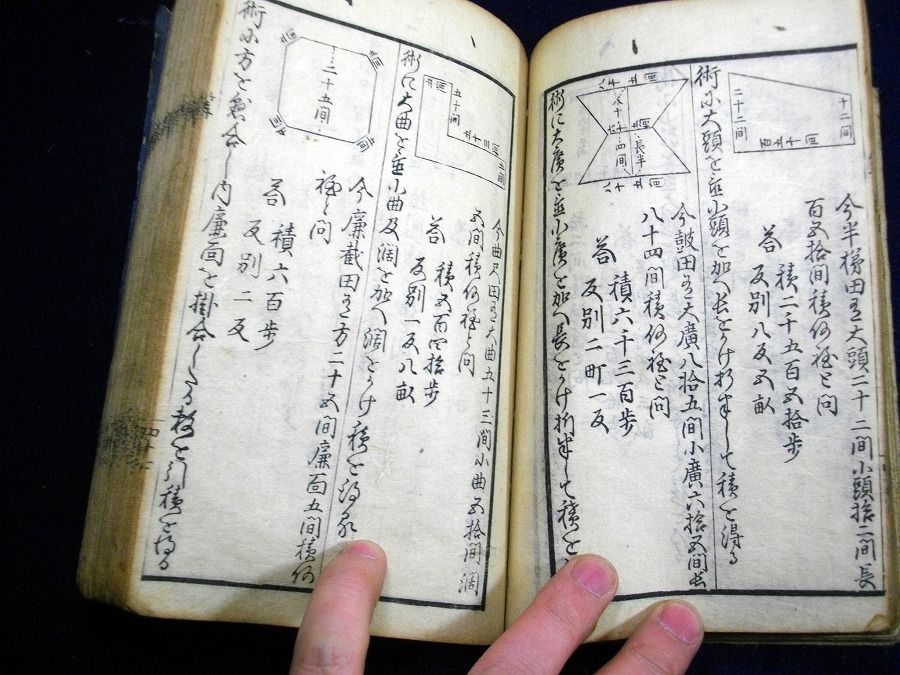 十二間
二十二間
百五十間
今半梯田有大頭二十二間小頭拾二間長
百五拾間積何程と問
答 積二千五百五拾歩
反別八反五畝
術に大頭を並小頭を加へ長をかけ折半して積を得る
長半
四間
今鼓田有大廣八拾五間小廣六拾五間長
八十四間積何程と問
答 積六千三百歩
反別二町一反
術に大廣を並小廣を加へ長をかけ折半して積を
五十間
五間
今曲尺田有大曲五十三間小曲五拾間濶
五間積何程と問
答 積五百四拾歩
反別一反八畝
術に大曲を並小曲及濶を加へ濶をかけ積を得る
二十五間
今廉截田有方二十五間廉面五間積何
程と問
答 積六百歩
反別二反
術に方を自合し内廉面を掛合したる数を引積を得る